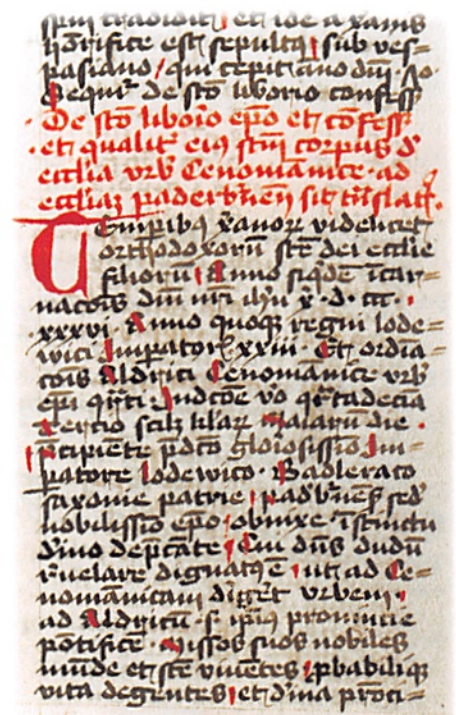 spiri tradidit et ide a xanis
horrifice est sepultus sub ves=
pasiano qui cepit ano dni
Sequit de sto liborio confess
De sto liborio epo et cofess
et qualit eius stm corpus d
ecclia urb Cenomanice ad
eccliaz paderbneñ sit tnslatū
Temporibus xanor videlicet
orthodoxoru ste dei ecclie
filioru Anno siqde incar=
nacois dni nri ihu x d ccc
xxxvi Anno quoqz regni lode=
wici Imperatoris xxiii Et ordia=
cois Aldrici Cenomanice urb
epi qrti Indcoe vo qrtadecia
Tertio scilz klar maiarum die
pncipiente pdco gloiosissio Im=
patore lodewico Badlerato
saxonie patrie padbnens sed
nobilissio epo obnixe instinctu
diuino depcate Cui dns dudu
reuelare dignatus e ut ad Ce=
nomanicam diget urbem
ad Aldricu s ipius prouincie
potifice Missos suos nobiles
munde et ste viuetes pbabiliqz
vita degentes et diuina proti=